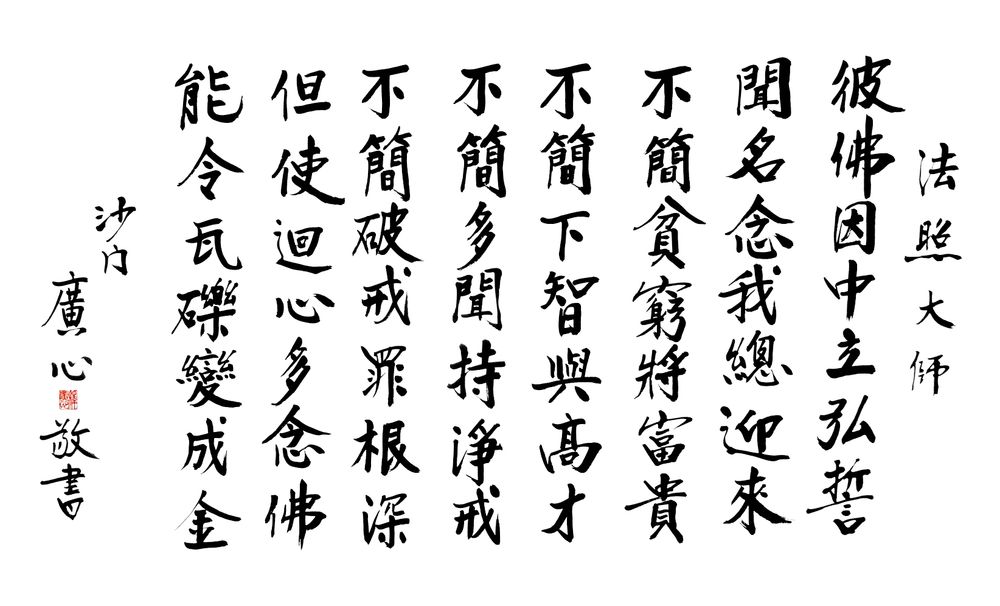 法照大師
彼佛因中立弘誓
聞名念我總迎來
不簡貧窮將富貴
不簡下智與高才
不簡多聞持淨戒
不簡破戒罪根深
但使迴心多念佛
能令瓦礫變成金
沙门
廣心敬書